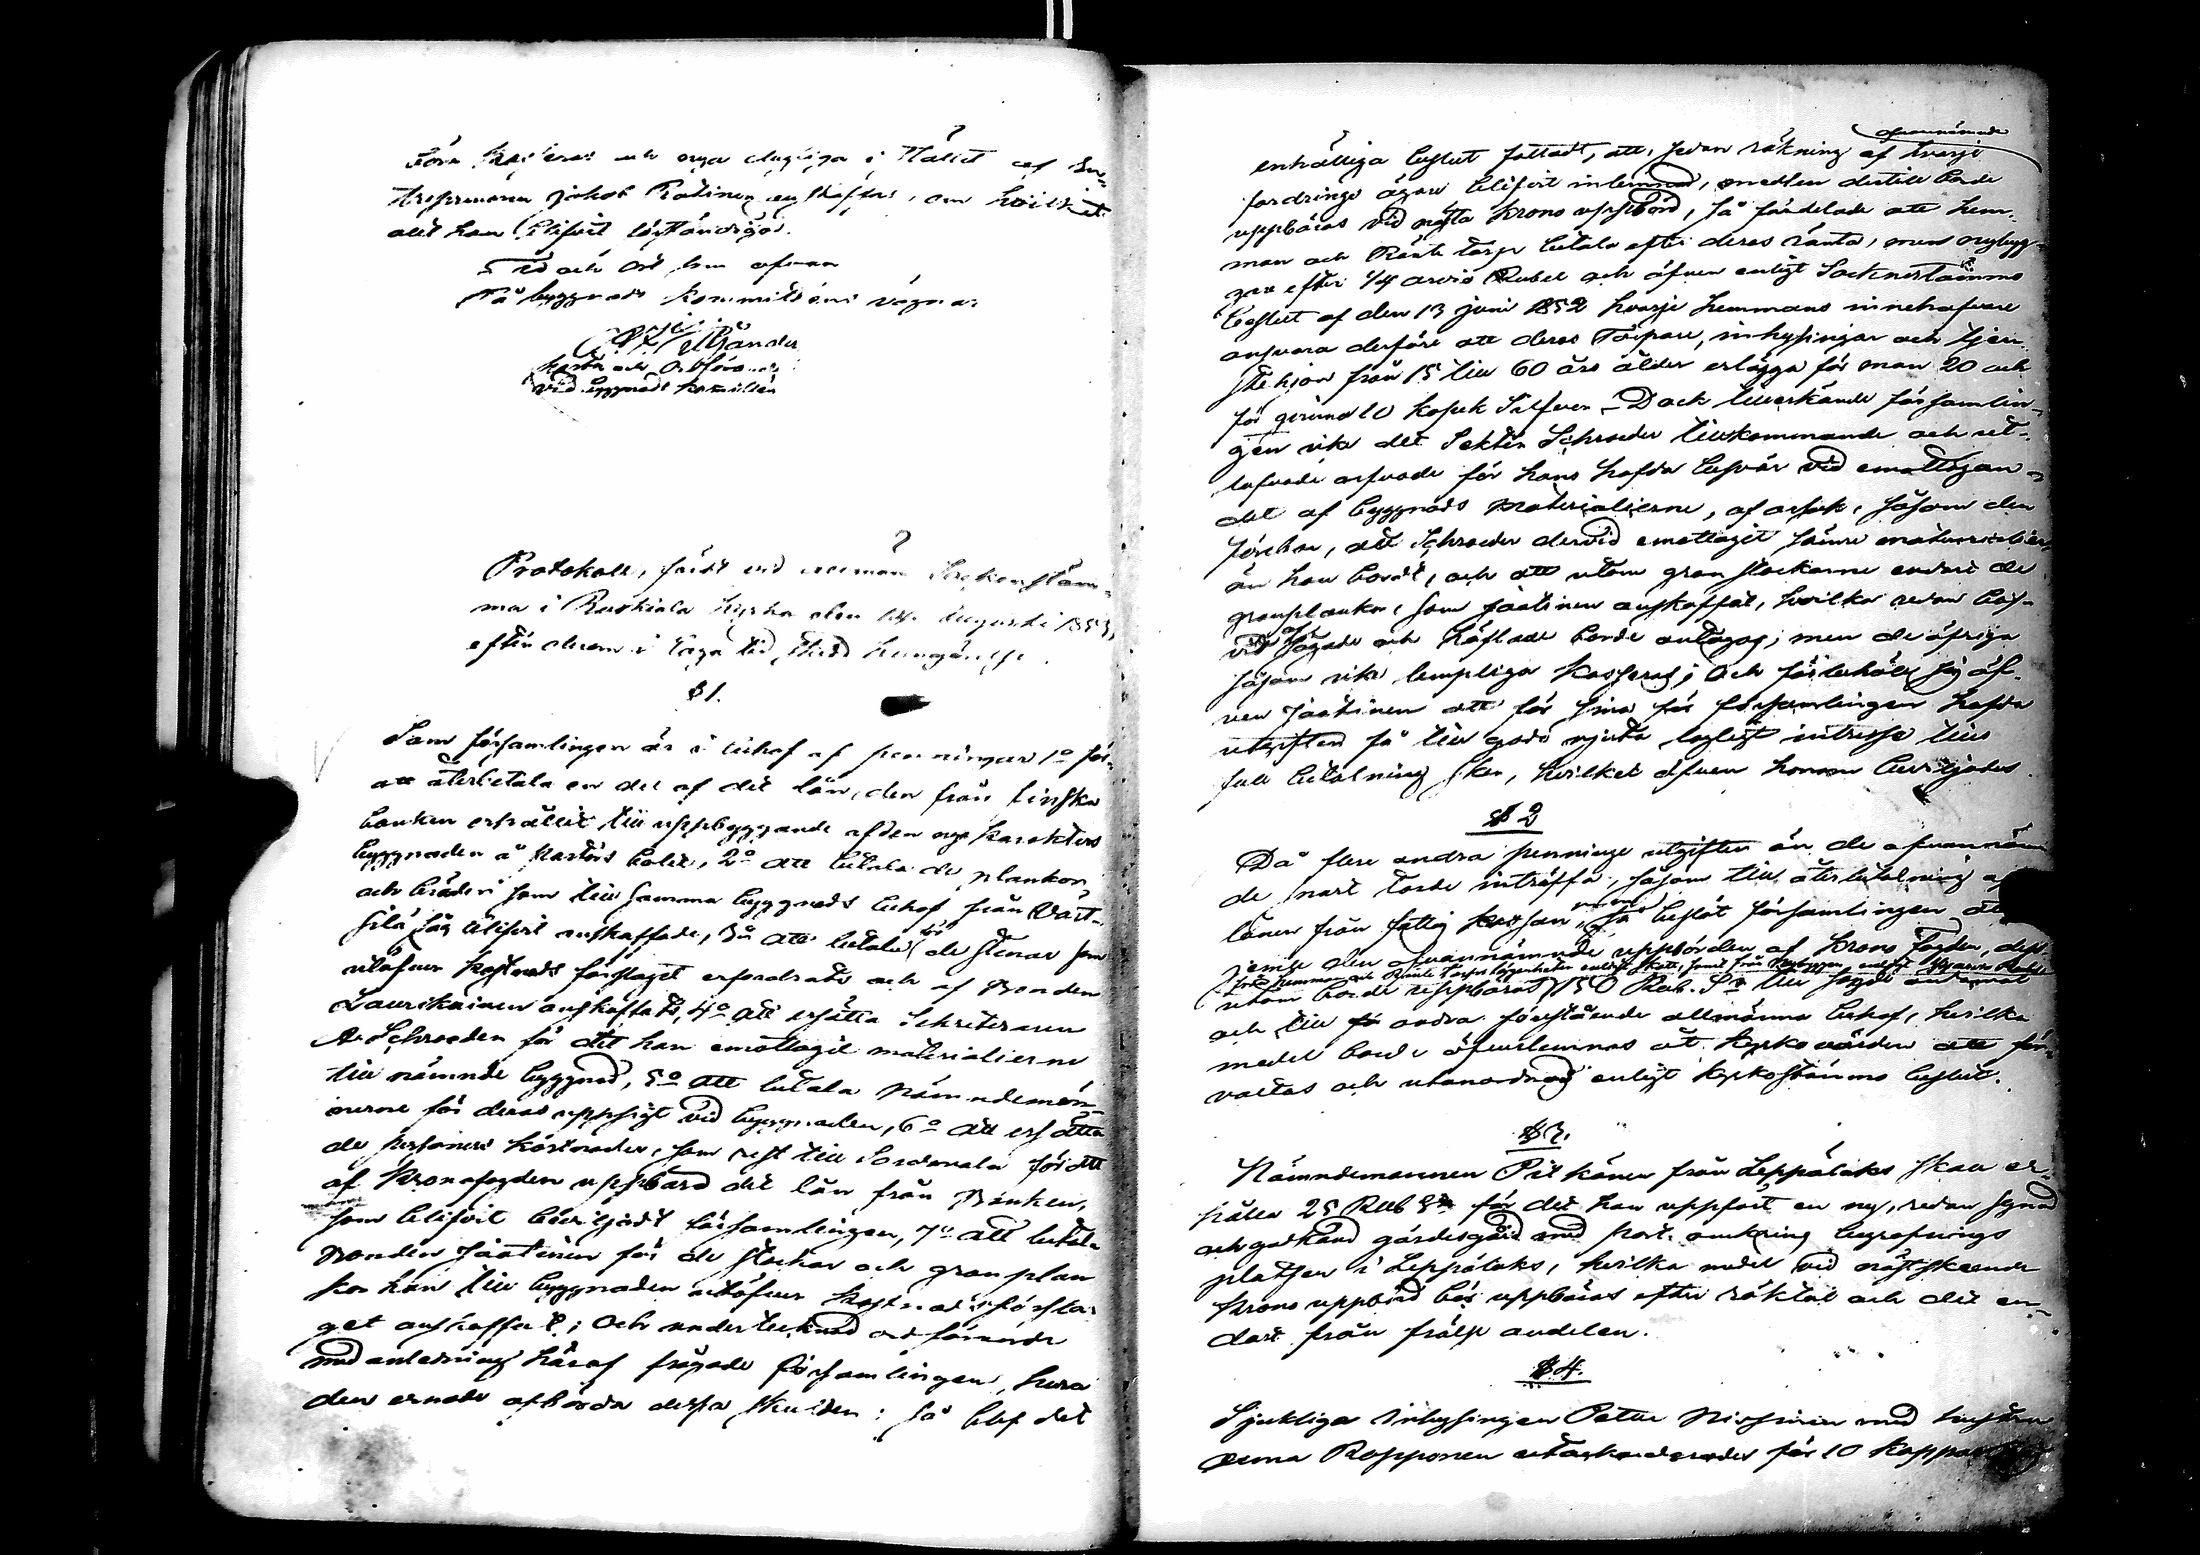 före kasseras och nya dugliga i stället af En-
treprenören Jakob anskaffas, om hvilket
allt han blifvit
Tid och Ort som ofvan
På byggnads Kommitténs vägnar

och Ordförande
vid byggnads komittén
Protokoll, fördt vid allmän Sockenstäm-
ma i Ruskiala Kyrka den 14 Augusti 1853,
efter derom i laga tid skedd kungörelse.
§ 1.
Som församlingen är i behof af penningar 1o för
att återbetala en del af det lån, den från finska
banken erhållit till uppbyggande af den nya karakters
byggnaden å Pastors bolet, 2o att betala de plankor
och bräder som till samma byggnads behof från Värt-
silä såg blifvit anskaffade, 3o att betala för de stenar som
utöfver kostnads förslaget erfordrats och af Bonden
Laurikainen anskaffats, 4o att ersätta Sekreteraren
A. Schroeder för det han emottagit materialierne
till nämnde byggnad, 5o att betala Nämndemän-
nerne för deras uppsigt vid byggnaden, 6o att ersätta
de personers kostnader, som rest till Sordavala för att
af Kronofogden uppbära det lån från Banken,
som blifvit beviljadt församlingen, 7o att betala
Bonden Jäätinen för de stockar och granplan
kor han till byggnaden utöfver kostnadsförsla-
get anskaffat; och undertecknad ordförande
med anledning häraf frågade församlingen, huru
den ernade afbörda dessa skulder: så blef det
enhälliga beslut fattadt, att, sedan räkning af hvarje ofvannämnde
fordrings ägare blifvit inlemnad, medlen dertill borde
uppbäras vid nästa krono uppbörd, så fördelade att hem-
man och Ränte torp betala efter deras ränta, men nybyg-
gen efter 1/4 arviò Rubel och äfven enligt Sockenstämmo
beslut af den 13 juni 1852 hvarje hemmans innehafvare
ansvara derföre att deras Torpare, inhysingar och tjen-
stehjon från 15 till 60 års ålder erlägga för man 20 och
för qvinna 10 kopek Silfver. Dock tillerkände församlin-
gen icke det Sekter Schroeder tillkommande och ut-
lofvade arfvode för hans hafda besvär vid emottagan-
det af byggnads materialierne, af orsak, såsom den
förebar, att Schroeder dervid emottagit sämre materialier
än han bordt, och att utom gran stockarne endast de
granplankor, som Jäätinen anskaffat, hvilka redan blif-
vit sågade och höflade borde antagas; men de öfriga
såsom icke lempliga kasseras; och förbehöll sig äf-
ven Jäätinen att för sina för församlingen hafda
utgifter få till godo njuta lagligt intresse tills
full betalning sker, hvilket äfven honom beviljades.
§ 2
Då flere andra penninge utgifter än de ofvannämn
de snart torde inträffa, såsom till återbetalning af
lånen från fattig kassan, så beslöt församlingen att
jemte den ofvannämnde uppbörden af krono fogden, dess-
från hemman och Ränte Torps lägenheter enligt skatt, samt från nybyggen enligt 1/4 arviò Rubel
utom borde uppbäras 150 Rub. Sr till sagde ändamål
och till andra förestående allmänna behof, hvilka
medel borde öfverlemnas åt kyrkovärden att för-
valtas och utanordnas enligt kyrkostämmo beslut.
§ 3.
Nämndemannen Pitkänen från Leppälaks skall er-
hålla 25 Rub Sr för det han uppfört en ny, redan synad
och godkänd gärdesgård med port omkring begrafnings
platsen i Leppälaks, hvilka medel vid nästskeende
krono uppbörd bör uppbäras efter röktal och det en-
dast från frälse andelen.
§ 4.
Sjukliga Inhysingen Petter med hustrun
Anna Ropponen för 10 kappar